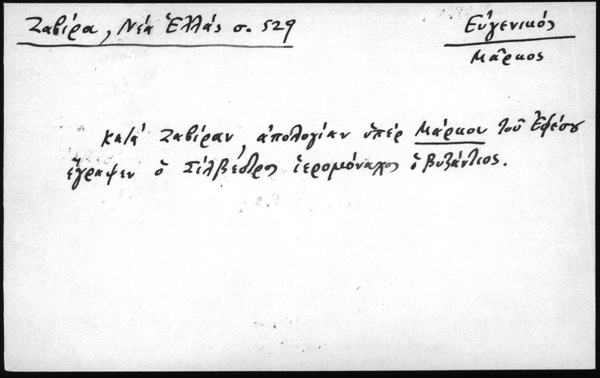 Ζαβίρα, Νέα Ἑλλάς σ. 529
Εὐγενικός
Μᾶρκος
κατά Ζαβίραν, ἀπολογίαν ὑπέρ Μάρκου τοῦ Ἐφέσου
ἔγραψεν ὁ Σίλβεστρος ἱερομόναχος ὁ Βυζάντιος.